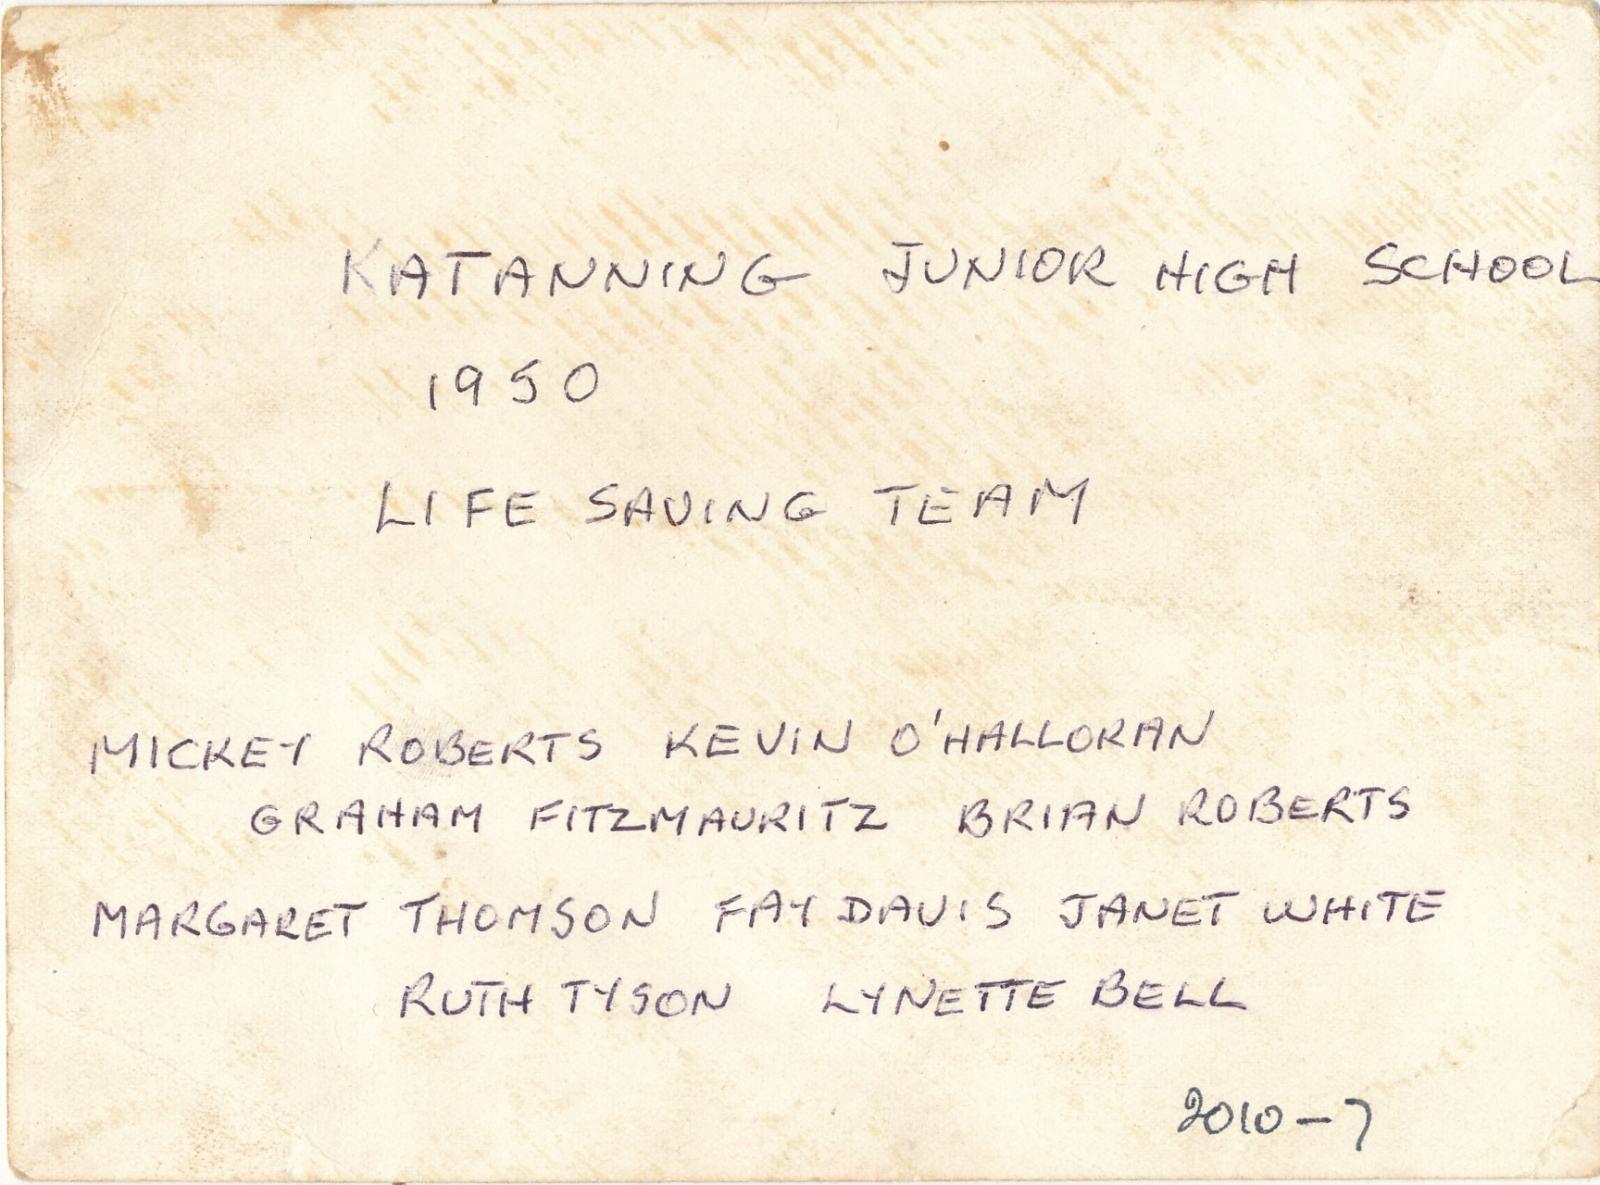 KATANNING JUNIOR HIGH SCHOOL
1950
LIFE SAVING TEAM
MICKEY ROBERTS KEVIN O'HALLORAN
GRAHAM FITZMAURITZ BRIAN ROBERTS
MARGARET THOMSON FAY DAVIS JANET WHITE
RUTH TYSON LYNETTE BELL
2010-7